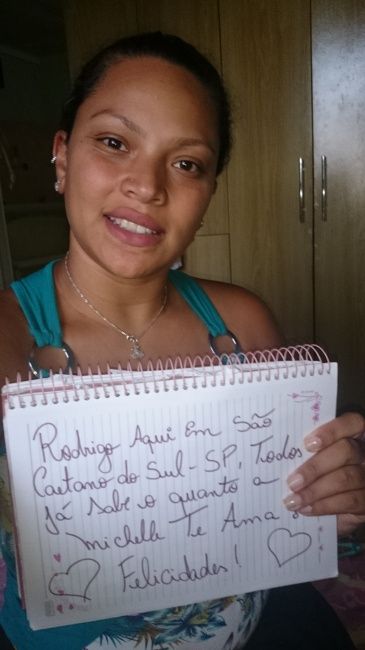 Rodrigo Aqui Em São
Caetano do Sul-SP, Todos
já sabe o quanto a
michelle Te Ama
Felicidades!